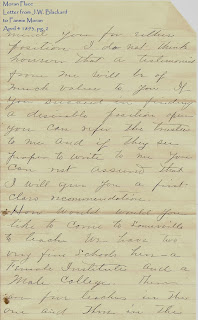 Moran Fleet
Letter from J.W. Blackard
to Fannie Moran
April 4 1893, pg. 2
you for either
position I do not think
however that a testimonial
from me will be of
much value to you If
you succeed in finding
a desirable position open
you can refer the trustees
to me and if they see
proper to write to me you
can rest assured that
I will give you a first
class recommendation.
How would you
like to come to Somerville
to teach. We have two
very fine Schools here - a
Female Institute and a
Male College
are four teachers in the
one and three in the